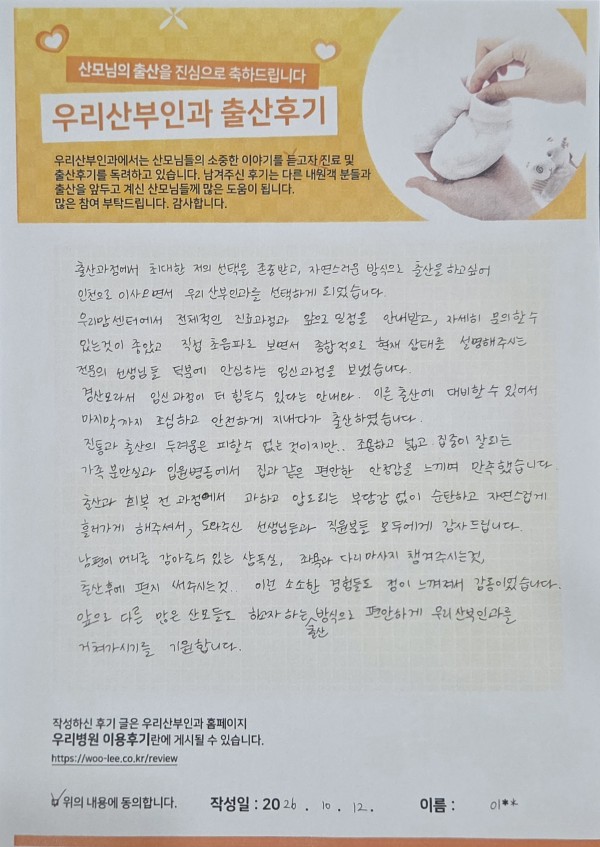 산모님의 출산을 진심으로 축하드립니다
우리산부인과 출산후기
우리산부인과에서는 산모님들의 소중한 이야기를 듣고자 진료 및
출산후기를 독려하고 있습니다. 남겨주신 후기는 다른 내원객 분들과
출산을 앞두고 계신 산모님들께 많은 도움이 됩니다.
많은 참여 부탁드립니다. 감사합니다.
출산과정에서 최대한 저의 선택을 존중받고, 자연스러운 방식으로 출산을 하고싶어
인천으로 이사오면서 우리산부인과를 선택하게 되었습니다.
우리맘센터에서 전체적인 진료과정과 앞으로 일정을 안내받고, 자세히 문의할 수
있는것이 좋았고 직접 초음파로 보면서 종합적으로 현재 상태를 설명해주시는
전문의 선생님들 덕분에 안심하는 임신과정을 보냈습니다.
경산모라서 임신과정이 더 힘든수 있다는 안내와. 이른 출산에 대비할 수 있어서
마지막까지 조심하고 안전하게 지내다가 출산하였습니다.
진통과 출산의 두려움은 피할수 없는 것이지만.. 조용하고 넓고 집중이 잘되는
가족 분만실과 입원병동에서 집과 같은 편안한 안정감을 느끼며 만족했습니다.
출산과 회복 전 과정에서 과하고 압도되는 부담감 없이 순탄하고 자연스럽게
흘러가게 해주셔서, 도와주신 선생님들과 직원분들 모두에게 감사드립니다.
남편이 머리를 감아줄수 있는 샴푸실, 좌욕과 다리마사지 챙겨주시는것,
출산후에 편지 써주시는것.. 이런 소소한 경험들도 정이 느껴져서 감동이었습니다.
앞으로 다른 많은 산모들도 하고자 하는 출산 방식으로 편안하게 우리산부인과를
거쳐가시기를 기원합니다.
작성하신 후기 글은 우리산부인과 홈페이지
우리병원 이용후기란에 게시될 수 있습니다.
https://woo-lee.co.kr/review
위의 내용에 동의합니다. 작성일 : 2026 . 10 . 12 . 이름 : 이**